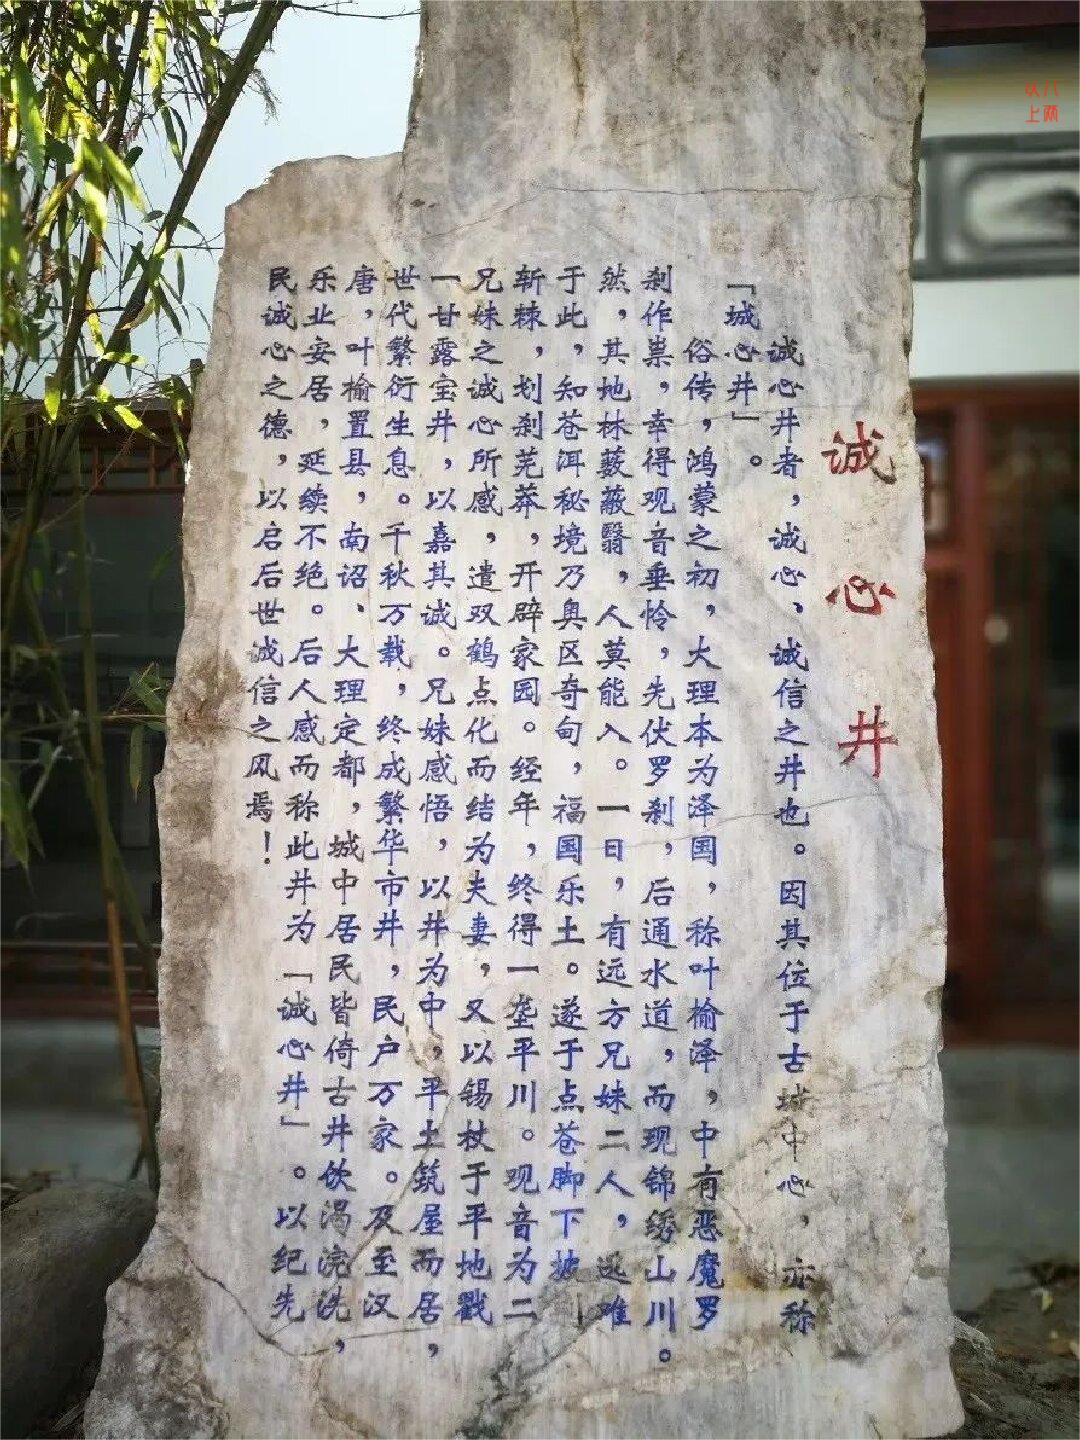 诚心井
诚心井者，诚心、诚信之井也。因其位于古城中心，亦称
「城心井」。
俗传，鸿蒙之初，大理本为泽国，称叶榆泽，中有恶魔罗
刹作祟，幸得观音垂怜，先伏罗刹，后通水道，而现锦绣山川。
然，其地林薮蔽翳，人莫能入。一日，有远方兄妹二人，逃难
于此，知苍洱秘境乃奥区奇甸，福国乐土。遂于点苍脚下披
斩棘，划刹芜莽，开辟家园。经年，终得一垄平川。观音为二
兄妹之诚心所感，遣双鹤点化而结为夫妻，又以锡杖于平地戳
一甘露宝井，以嘉其诚。兄妹感悟，以井为中，平土筑屋而居，
世代繁衍生息。千秋万载，终成繁华市井，民户万家。及至汉
唐，叶榆置县，南诏、大理定都，城中居民皆倚古井饮渴浣洗，
乐业安居，延续不绝。后人感而称此井为「诚心井」。以纪先
民诚心之德，以启后世诚信之风焉！
从八
上两